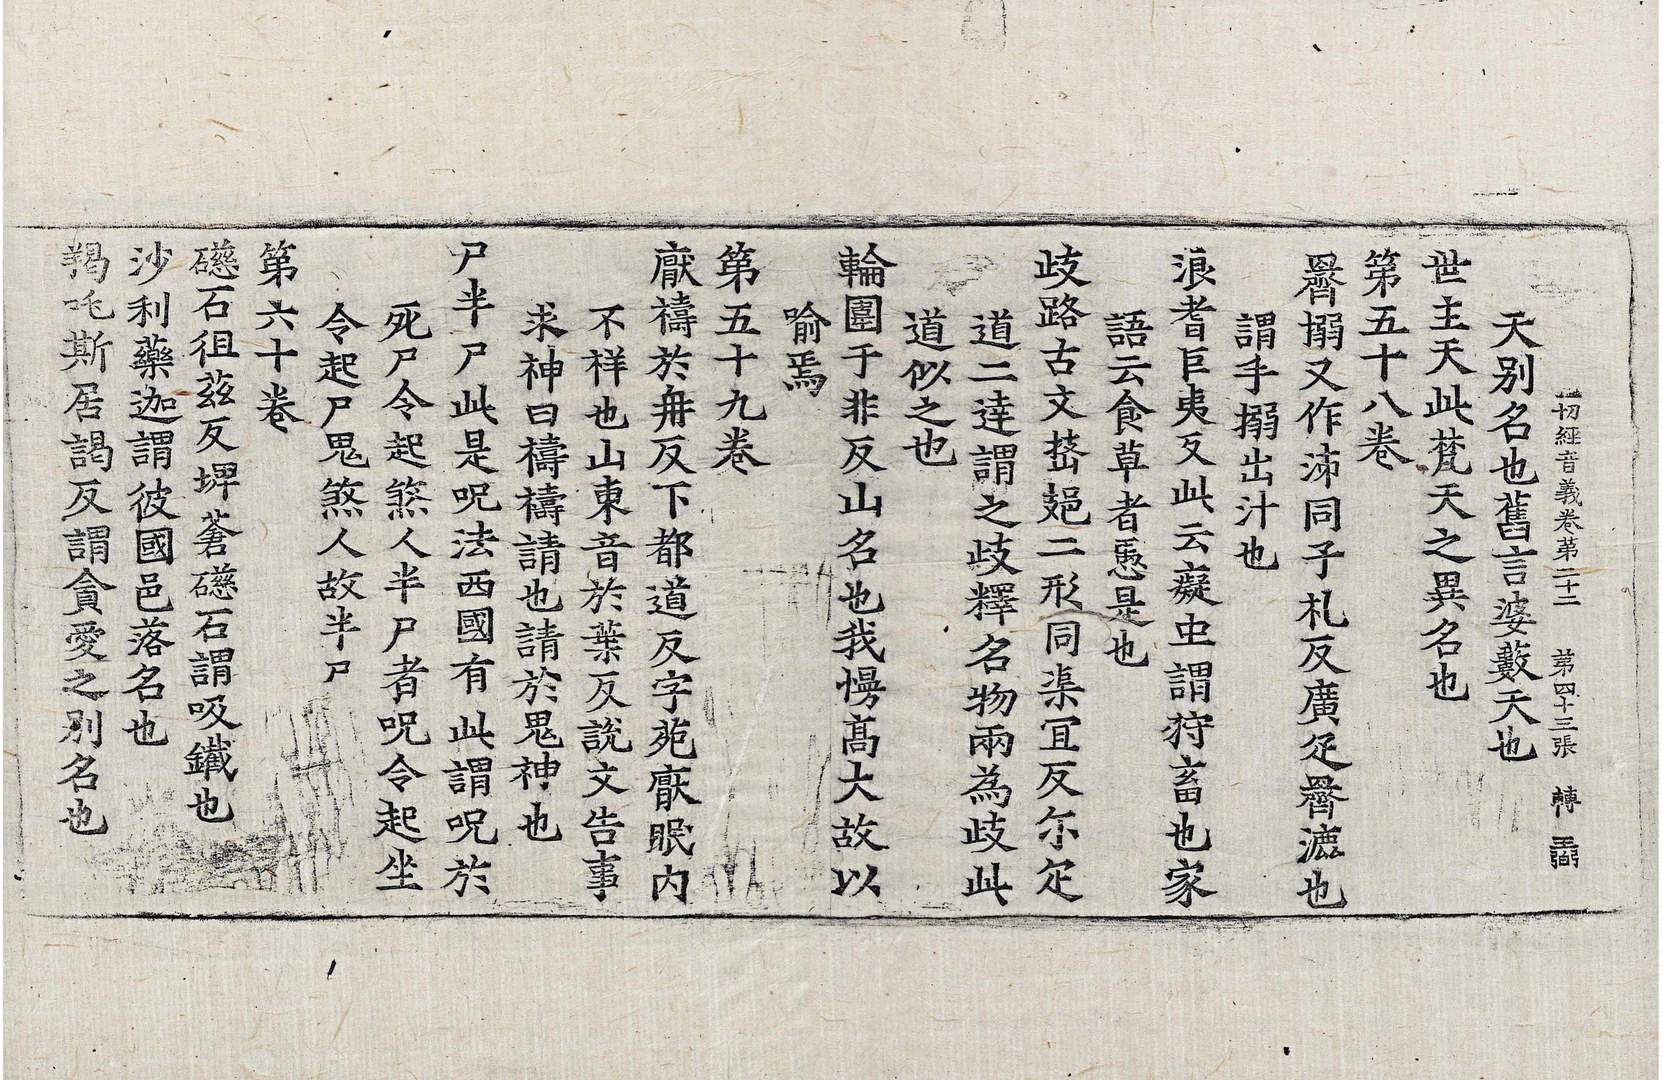 切經音義卷第二十二　第四十三張　轉
天別名也舊言婆藪天也
世主天此梵天之異名也
第五十八卷
𦌘搦又作沛同子札反廣疋𦌘漉也
謂手搦出汁也
浪耆巨夷反此云癡虫謂狩畜也家
語云食草者愚是也
歧路古文𢺵𨙸二形同渠宜反尒疋
道二達謂之歧釋名物兩為歧此
道似之也
輪圍于非反山名也我慢高大故以
喻焉
第五十九卷
厭禱於冉反下都道反字苑厭眠内
不祥也山東音於葉反說文告事
求神曰禱禱請也請於鬼神也
尸半尸此是呪法西國有此謂呪於
死尸令起煞人半尸者呪令起坐
令起尸鬼煞人故半尸
第六十卷
礠石徂茲反埤蒼礠石謂吸鐵也
沙利藥迦謂彼國邑落名也
羯吒斯居謁反謂貪愛之別名也